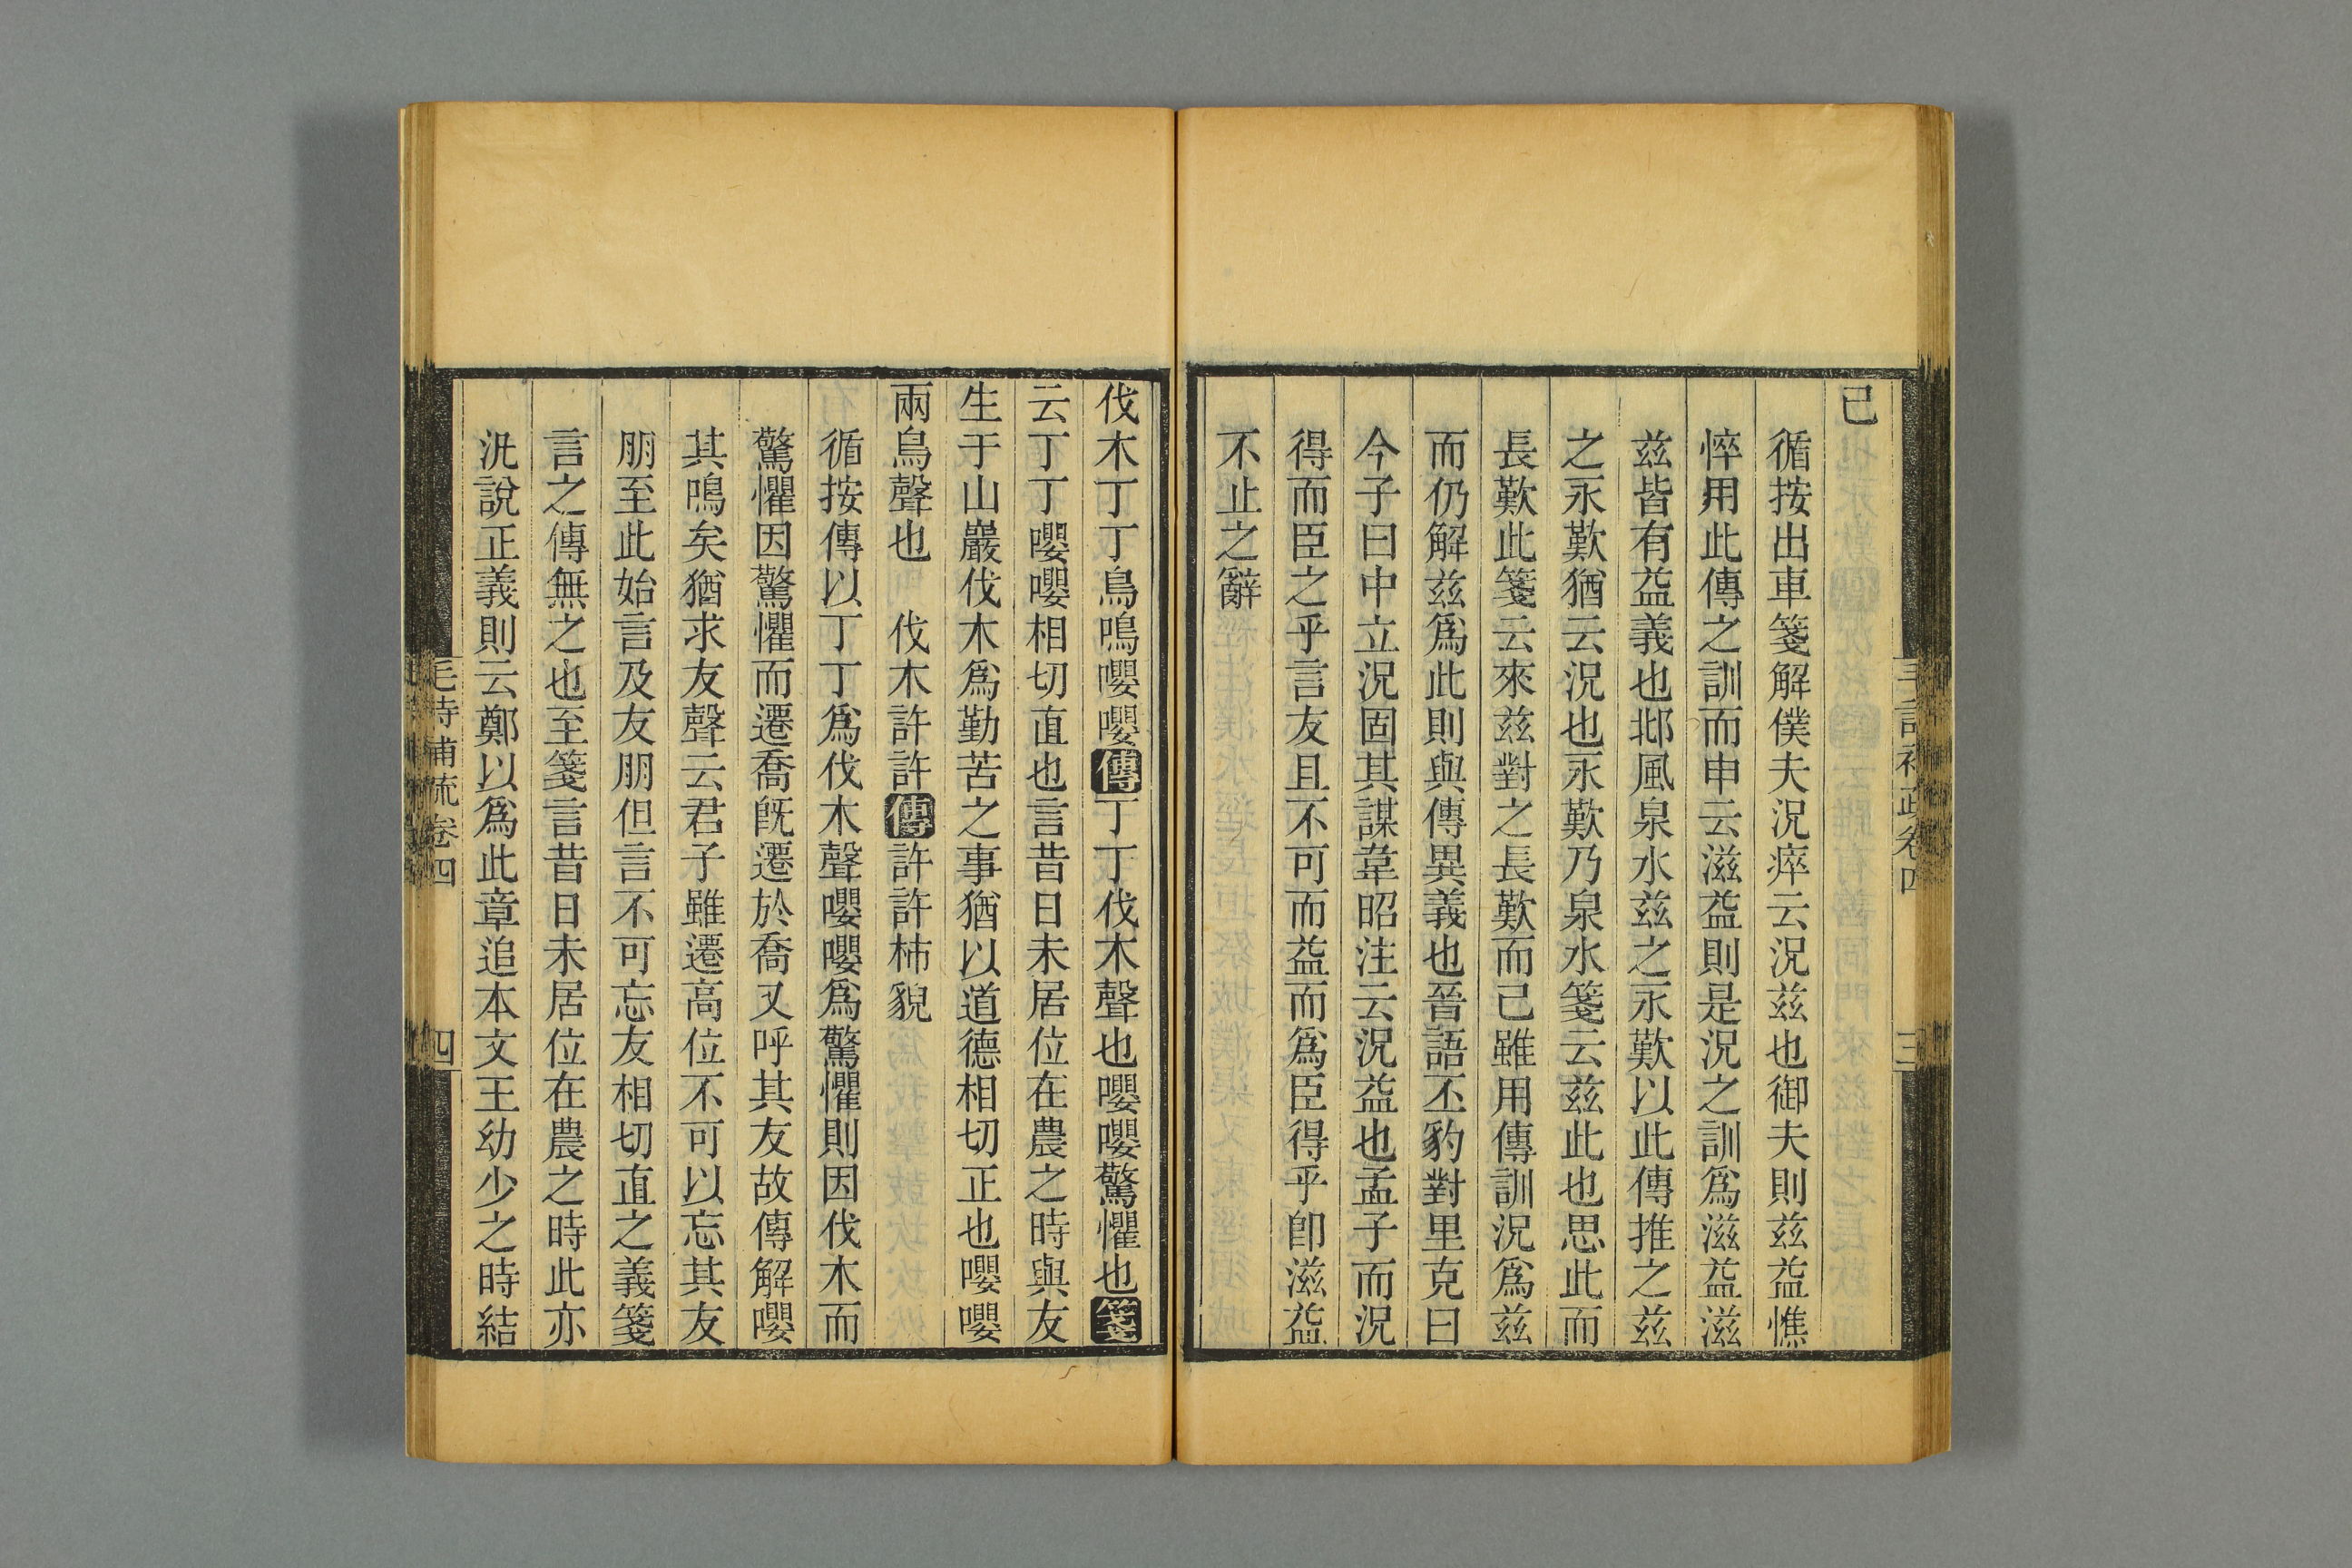 已
循按出車箋解僕夫況瘁云況茲也御夫則茲益憔
悴用此傳之訓而申云滋益則是況之訓爲滋益滋
茲皆有益義也邶風泉水茲之永歎以此傳推之茲
之永歎猶云況也永歎乃泉水箋云茲此也思此而
長歎此箋云來茲對之長歎而已雖用傳訓況爲茲
而仍解茲爲此則與傳異義也晉語丕豹對里克曰
今子曰中立況固其謀韋昭注云況益也孟子而況
得而臣之乎言友且不可而益而爲臣得乎卽滋益
不止之辭
伐木丁丁鳥鳴嚶嚶傳丁丁伐木聲也嚶嚶驚懼也箋
云丁丁嚶嚶相切直也言昔日未居位在農之時與友
生于山巖伐木爲勤苦之事猶以道德相切正也嚶嚶
兩鳥聲也　伐木許許傳許許柿貌
循按傳以丁丁爲伐木聲嚶嚶爲驚懼則因伐木而
驚懼因驚懼而遷喬旣遷於喬又呼其友故傳解嚶
其鳴矣猶求友聲云君子雖遷高位不可以忘其友
朋至此始言及友朋但言不可忘友相切直之義箋
言之傳無之也至箋言昔日未居位在農之時此亦
汎說正義則云鄭以爲此章追本文王幼少之時結
毛詩補疏卷四
四